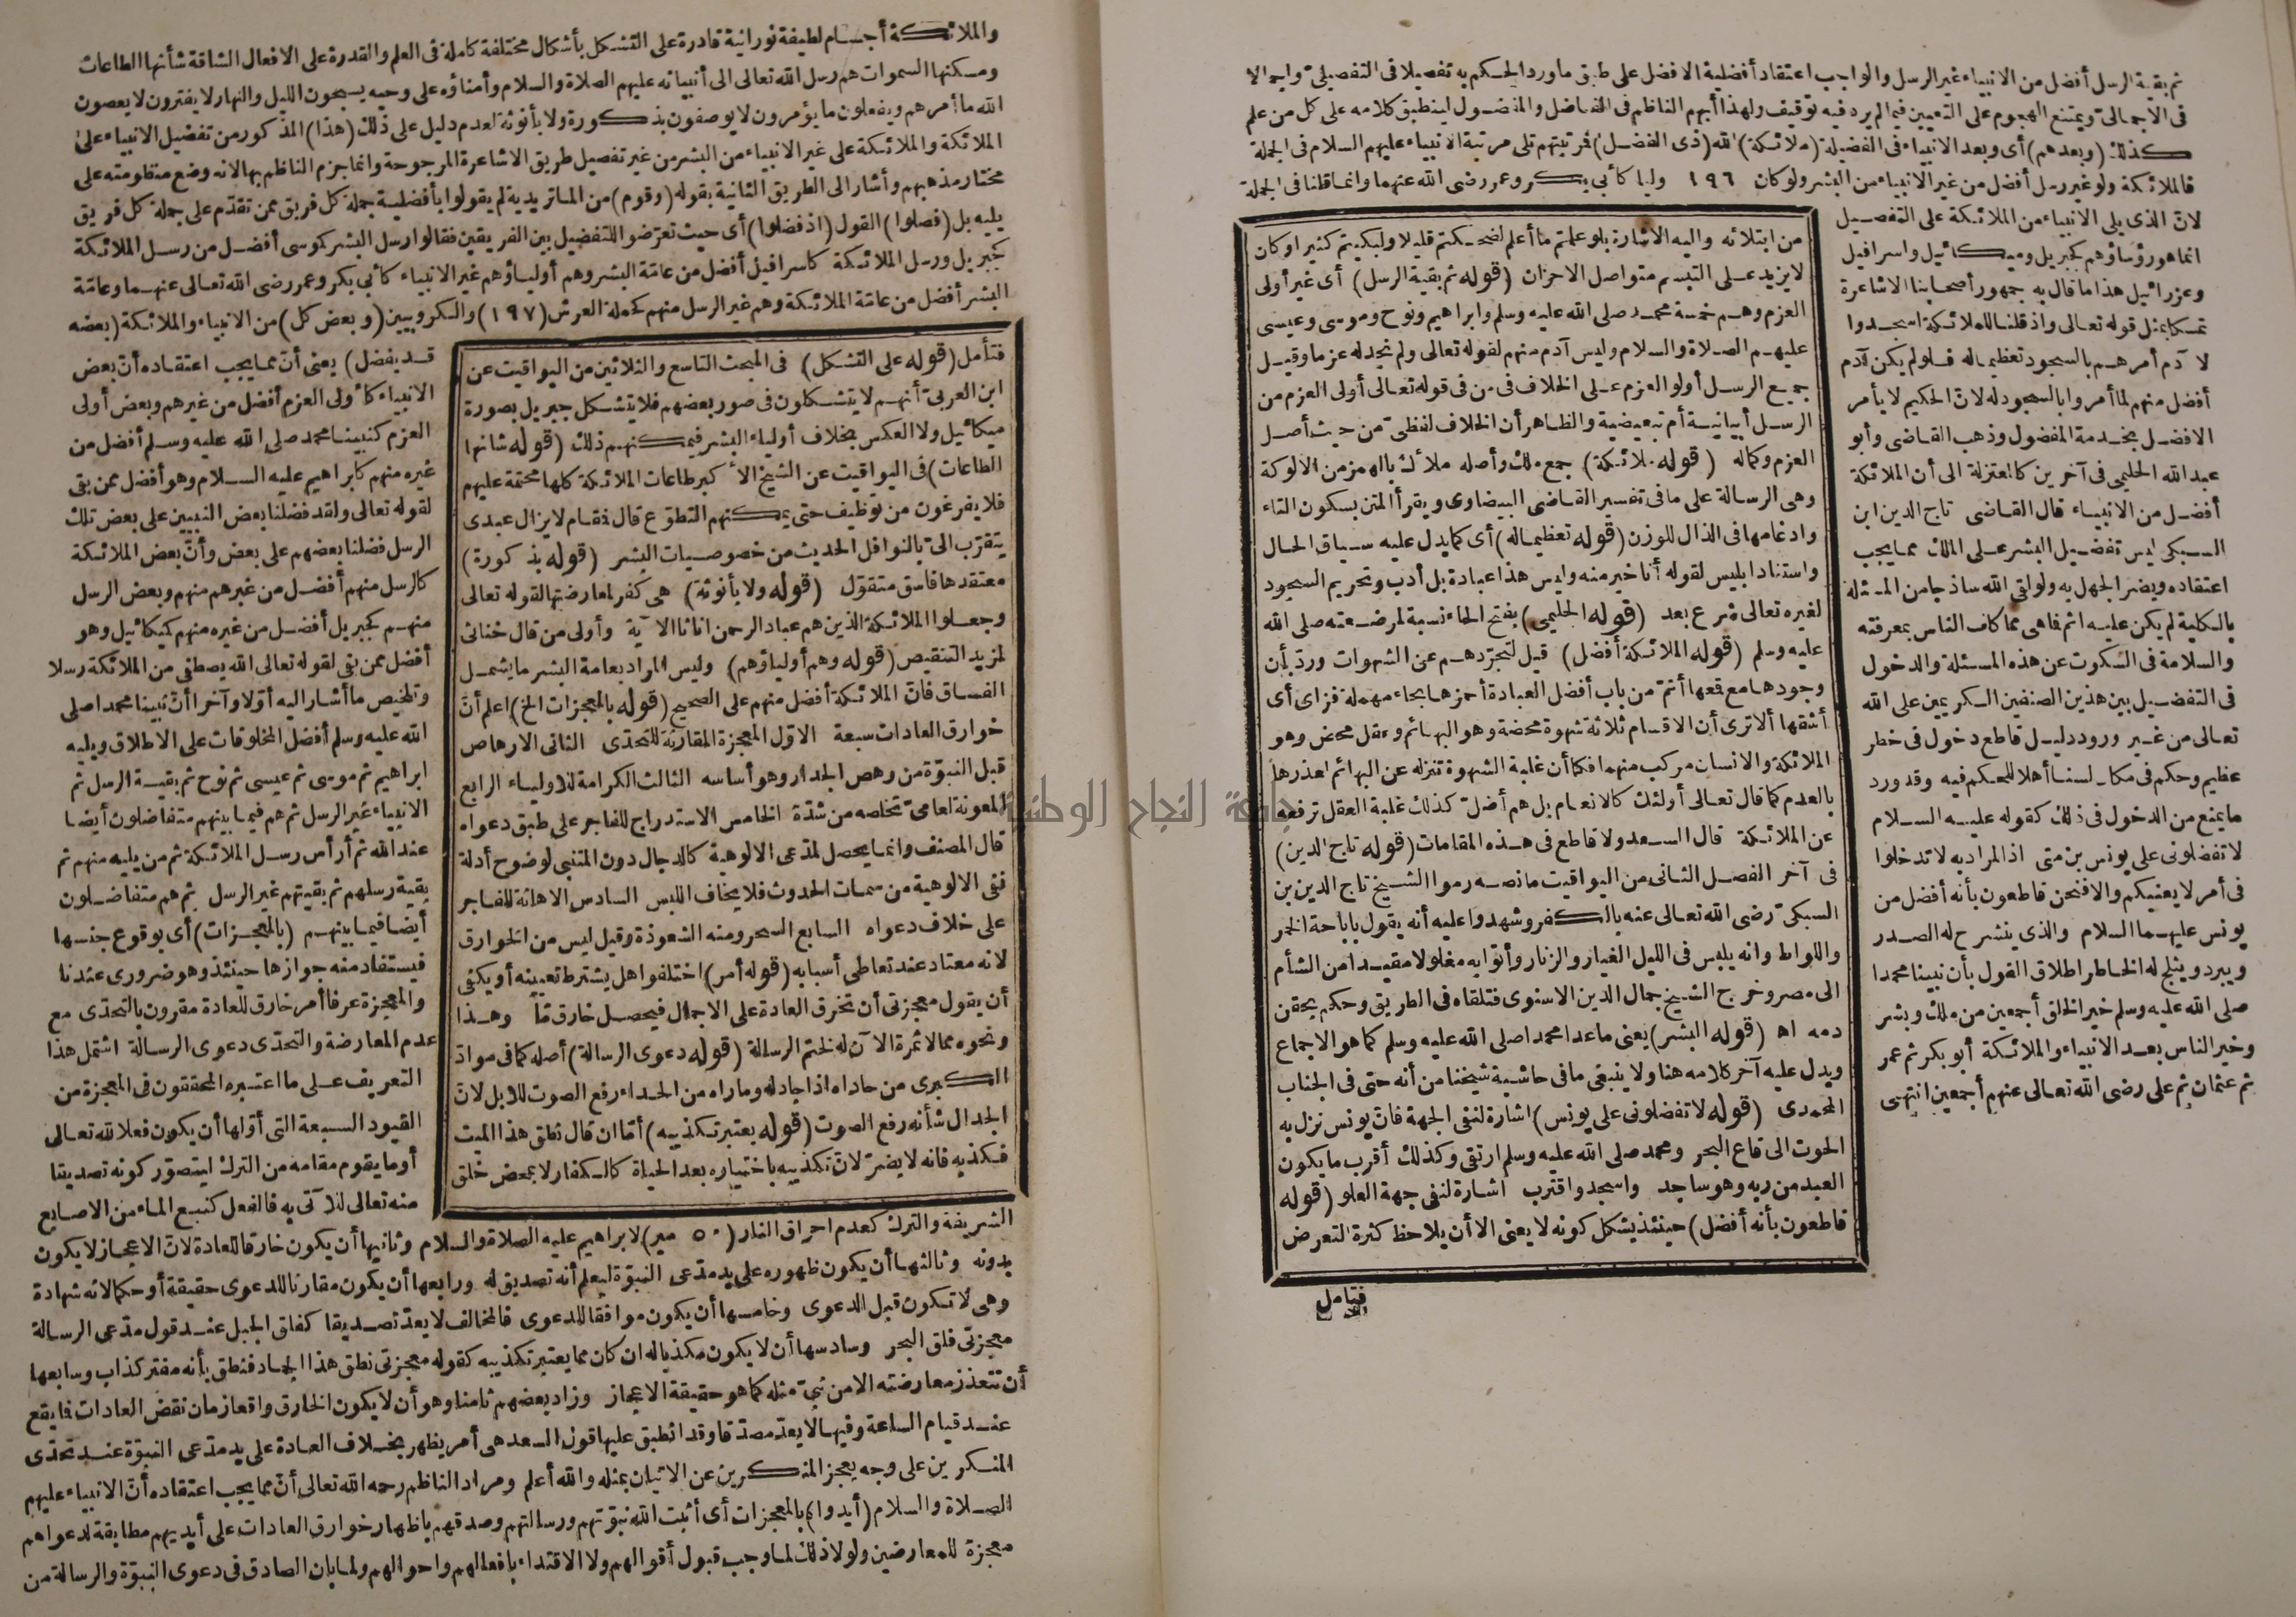 ثم بقية الرسل أفضل من الانبياء غير الرسل والواجب اعتقاد أفضلية الافضل على طبق ماورد الحكم به تفصيلا فى التفصيلى واجمالا
فى الاجمالى ويمتنع الهجوم على التعيين فيما لم يرد فيه توقيف ولهذا أبهم الناظم فى الفاضل والمفضول لينطبق كلامه على كل من علم
كذلك (وبعدهم) أى وبعد الانبياء فى الفضيلة (ملائكة) الله (ذى الفضل) فرتبتهم تلى مرتبة الانبياء عليهم السلام فى الجملة
فالملائكة ولو غير رسل أفضل من غير الانبياء من البشر ولو كان ١٩٦ وليا كأبى بكر وعمر رضى الله عنهما وانما قلنا فى الجملة
لان الذى يلى الانبياء من الملائكة على التفصيل
انما هو رؤساؤهم كجبريل وميكائيل واسرافيل
وعزرائيل هذا ما قال به جمهور أصحابنا الاشاعرة
تمسكا بمثل قوله تعالى واذ قلنا للملائكة اسجدوا
لا دم أمرهم بالسجود تعظيما له فلو لم يكن آدم
أفضل منهم لما أمروا بالسجود له لان الحكيم لا يأمر
الافضل بخدمة المفضول وذهب القاضى وأبو
عبد الله الحليمى فى آخرين كالمعتزلة الى أن الملائكة
أفضل من الانبياء قال القاضى تاج الدين ابن
السبكى ليس تفضيل البشر على الملك مما يجب
اعتقاده ويضر الجهل به ولو لقى الله ساذجا من المسئلة
بالكلية لم يكن عليه اثم فما هى مما كاف الناس بمعرفته
والسلامة فى السكوت عن هذه المسئلة والدخول
فى التفضيل بين هذين الصنفين الكريمين على الله
تعالى من غير ورود دليل قاطع دخول فى خطر
عظيم وحكم فى مكان لسنا أهلا للحكم فيه وقد ورد
ما يمنع من الدخول فى ذلك كقوله عليه السلام
لا تفضلونى على يونس بن متى اذ المراد به لا تدخلوا
فى أمر لا يعنيكم والا فنحن قاطعون بأنه أفضل من
يونس عليهما السلام والذى ينشرح له الصدر
ويبرد ويثلج له الخاطر اطلاق القول بأن نبينا محمدا
صلى الله عليه وسلم خير الخلق أجمعين من ملك وبشر
وخير الناس بعد الانبياء والملائكة أبو بكر ثم عمر
ثم عثمان ثم على رضى الله تعالى عنهم أجمعين انتهى
من ابتلائه واليه الاشارة بلو علمتم ما أعلم لضحكتم قليلا ولبكيتم كثيرا وكان
لا يزيد على التبسم متواصل الاحزان (قوله ثم بقية الرسل) أى غير أولى
العزم وهم خمسة محمد صلى الله عليه وسلم وابراهيم ونوح وموسى وعيسى
عليهم الصلاة والسلام وليس آدم منهم لقوله تعالى ولم نجد له عزما وقيل
جميع الرسل أولو العزم على الخلاف فى من فى قوله تعالى أولى العزم من
الرسل أبيانية أم تبعيضية والظاهر أن الخلاف لفظى من حيث أصل
العزم وكماله (قوله ملائكة) جمع ملك وأصله ملأك بالهمز من الألوكة
وهى الرسالة على ما فى تفسير القاضى البيضاوى ويقرأ المتن بسكون التاء
وادغامها فى الذال للوزن (قوله تعظيما له) أى كما يدل عليه سياق الحال
واستناد ابليس لقوله أنا خير منه وليس هذا عبادة بل أدب وتحريم السجود
لغيره تعالى شرع بعد (قوله الحليمى) بفتح الحاء نسبة لمرضعته صلى الله
عليه وسلم (قوله الملائكة أفضل) قيل لتجردهم عن الشهوات ورد بأن
وجودها مع قمعها أتم من باب أفضل العبادة أحمزها بحاء مهملة فزاى أى
أشقها ألا ترى أن الاقسام ثلاثة شهوة محضة وهو البهائم وعقل محض وهو
الملائكة والانسان مركب منهما فكما أن غلبة الشهوة تنزله عن البهائم لعذرها
بالعدم كما قال تعالى أولئك كالانعام بل هم أضل كذلك غلبة العقل ترفعه
عن الملائكة قال السعد ولا قاطع فى هذه المقامات (قوله تاج الدين)
فى آخر الفصل الثانى من اليواقيت ما نصه رموا الشيخ تاج الدين بن
السبكى رضى الله تعالى عنه بالكفر وشهدوا عليه أنه يقول باباحة الخمر
واللواط وانه يلبس فى الليل الغيار والزنار وأتوا به مغلولا مقيدا من الشأم
الى مصر وخرج الشيخ جمال الدين الاسنوى فتلقاه فى الطريق وحكم بحقن
دمه اه (قوله البشر) يعنى ما عدا محمدا صلى الله عليه وسلم كما هو الاجماع
ويدل عليه آخر كلامه هنا ولا ينبغى ما فى حاشية شيخنا من أنه حتى فى الجناب
المحمدى (قوله لا تفضلونى على يونس) اشارة لنفى الجهة فان يونس نزل به
الحوت الى قاع البحر ومحمد صلى الله عليه وسلم ارتقى وكذلك أقرب ما يكون
العبد من ربه وهو ساجد واسجد واقترب اشارة لنفى جهة العلو (قوله
قاطعون بأنه أفضل) حينئذ يشكل كونه لا يعنى الا أن يلاحظ كثرة التعرض
فتأمل
والملائكة أجسام لطيفة نورانية قادرة على التشكل بأشكال مختلفة كاملة فى العلم والقدرة على الافعال الشاقة شأنها الطاعات
ومسكنها السموات هم رسل الله تعالى الى أنبيائه عليهم الصلاة والسلام وأمناؤه على وحيه يسبحون الليل والنهار لا يفترون لا يعصون
الله ما أمرهم ويفعلون ما يؤمرون لا يوصفون بذكورة ولا بأنوثة لعدم دليل على ذلك (هذا) المذكور من تفضيل الانبياء على
الملائكة والملائكة على غير الانبياء من البشر من غير تفصيل طريق الاشاعرة المرجوحة وانما جزم الناظم بها لانه وضع منظومته على
مختار مذهبهم وأشار الى الطريق الثانية بقوله (وقوم) من الماتريدية لم يقولوا بأفضلية جملة كل فريق ممن تقدم على جملة كل فريق
يليه بل (فصلوا) القول (اذ فضلوا) أى حيث تعرضوا للتفضيل بين الفريقين فقالوا رسل البشر كموسى أفضل من رسل الملائكة
كجبريل ورسل الملائكة كاسرافيل أفضل من عامة البشر وهم أولياؤهم غير الانبياء كأبى بكر وعمر رضى الله تعالى عنهما وعامة
البشر أفضل من عامة الملائكة وهم غير الرسل منهم كحملة العرش (١٩٧) والكروبيين (وبعض كل) من الانبياء والملائكة (بعضه
قد يفضل) يعنى أن مما يجب اعتقاده أن بعض
الانبياء كأولى العزم أفضل من غيرهم وبعض أولى
العزم كنبينا محمد صلى الله عليه وسلم أفضل من
غيره منهم كابراهيم عليه السلام وهو أفضل ممن بقى
لقوله تعالى ولقد فضلنا بعض النبيين على بعض تلك
الرسل فضلنا بعضهم على بعض وأن بعض الملائكة
كالرسل منهم أفضل من غيرهم منهم وبعض الرسل
منهم كجبريل أفضل من غيره منهم كميكائيل وهو
أفضل ممن بقى لقوله تعالى الله يصطفى من الملائكة رسلا
وتلخيص ما أشار اليه أولا وآخرا أن نبينا محمدا صلى
الله عليه وسلم أفضل المخلوقات على الاطلاق ويليه
ابراهيم ثم موسى ثم عيسى ثم نوح ثم بقية الرسل ثم
الانبياء غير الرسل ثم هم فيما بينهم متفاضلون أيضا
عند الله ثم أرأس رسل الملائكة ثم من يليه منهم ثم
بقية رسلهم ثم بقيتهم غير الرسل ثم هم متفاضلون
أيضا فيما بينهم (بالمعجزات) أى بوقوع جنسها
فيستفاد منه جوازها حينئذ وهو ضرورى عندنا
والمعجزة عرفا أمر خارق للعادة مقرون بالتحدى مع
عدم المعارضة والتحدى دعوى الرسالة اشتمل هذا
التعريف على ما اعتبره المحققون فى المعجزة من
القيود السبعة التى أولها أن يكون فعلا لله تعالى
أو ما يقوم مقامه من الترك ليتصور كونه تصديقا
منه تعالى للآتى به فالفعل كنبع الماء من الاصابع
فتأمل (قوله على التشكل) فى المبحث التاسع والثلاثين من اليواقيت عن
ابن العربى أنهم لا يتشكلون فى صور بعضهم فلا يتشكل جبريل بصورة
ميكائيل ولا العكس بخلاف أولياء البشر فيمكنهم ذلك (قوله شأنها
الطاعات) فى اليواقيت عن الشيخ الأكبر طاعات الملائكة كلها محتمة عليهم
فلا يفرغون من توظيف حتى يمكنهم التطوع قال فمقام لا يزال عبدى
يتقرب الى بالنوافل الحديث من خصوصيات البشر (قوله بذكورة)
معتقدها فاسق متقول (قوله ولا بأنوثة) هى كفر لمعارضتها لقوله تعالى
وجعلوا الملائكة الذين هم عباد الرحمن اناثا الآية وأولى من قال خناثى
لمزيد التنقيص (قوله وهم أولياؤهم) وليس المراد بعامة البشر ما يشمل
الفساق فان الملائكة أفضل منهم على الصحيح (قوله بالمعجزات الخ) اعلم أن
خوارق العادات سبعة الاول المعجزة المقارنة للتحدى الثانى الارهاص
قبل النبوة من رهص الجدار وهو أساسه الثالث الكرامة للاولياء الرابع
المعونة لعامى تخلصه من شدة الخامس الاستدراج للفاجر على طبق دعواه
قال المصنف وانما يحصل لمدعى الالوهية كالدجال دون المتنبى لوضوح أدلة
نفى الالوهية من سمات الحدوث فلا يخاف اللبس السادس الاهانة للفاجر
على خلاف دعواه السابع السحر ومنه الشعوذة وقيل ليس من الخوارق
لانه معتاد عند تعاطى أسبابه (قوله أمر) اختلفوا هل يشترط تعيينه أو يكفى
أن يقول معجزتى أن تخرق العادة على الاجمال فيحصل خارق ما وهذا
ونحوه مما لا ثمرة الآن له لختم الرسالة (قوله دعوى الرسالة) أصله كما فى مواد
الكبرى من حاداه اذا جادله وماراه من الحداء رفع الصوت للابل لان
الجدال شأنه رفع الصوت (قوله يعتبر تكذيبه) أما ان قال نطق هذا الميت
فكذبه فانه لا يضر لان تكذيبه باختياره بعد الحياة كالكفار لا بمحض خلق
الشريفة والترك كعدم احراق النار (٥٠ مير) لابراهيم عليه الصلاة والسلام وثانيها أن يكون خارقا للعادة لان الاعجاز لا يكون
بدونه وثالثها أن يكون ظهوره على يد مدعى النبوة ليعلم أنه تصديق له ورابعها أن يكون مقارنا للدعوى حقيقة أو حكما لانه شهادة
وهى لا تكون قبل الدعوى وخامسها أن يكون موافقا للدعوى فالمخالف لا يعد تصديقا كفلق الجبل عند قول مدعى الرسالة
معجزتى فلق البحر وسادسها أن لا يكون مكذبا له ان كان مما يعتبر تكذيبه كقوله معجزتى نطق هذا الجماد فنطق بأنه مفتر كذاب وسابعها
أن تتعذر معارضته الا من نبى مثله كما هو حقيقة الاعجاز وزاد بعضهم ثامنا وهو أن لا يكون الخارق واقعا زمان نقض العادات فما يقع
عند قيام الساعة وفيها لا يعد مصدقا وقد انطبق عليها قول السعد هى أمر يظهر بخلاف العادة على يد مدعى النبوة عند تحدى
المنكرين على وجه يعجز المنكرين عن الاتيان بمثله والله أعلم ومراد الناظم رحمه الله تعالى أن مما يجب اعتقاده أن الانبياء عليهم
الصلاة والسلام (أيدوا) بالمعجزات أى أثبت الله نبوتهم ورسالتهم وصدقهم باظهار خوارق العادات على أيديهم مطابقة لدعواهم
معجزة للمعارضين ولولا ذلك لما وجب قبول أقوالهم ولا الاقتداء بافعالهم واحوالهم ولما بان الصادق فى دعوى النبوة والرسالة من
جامعة النجاح الوطنية